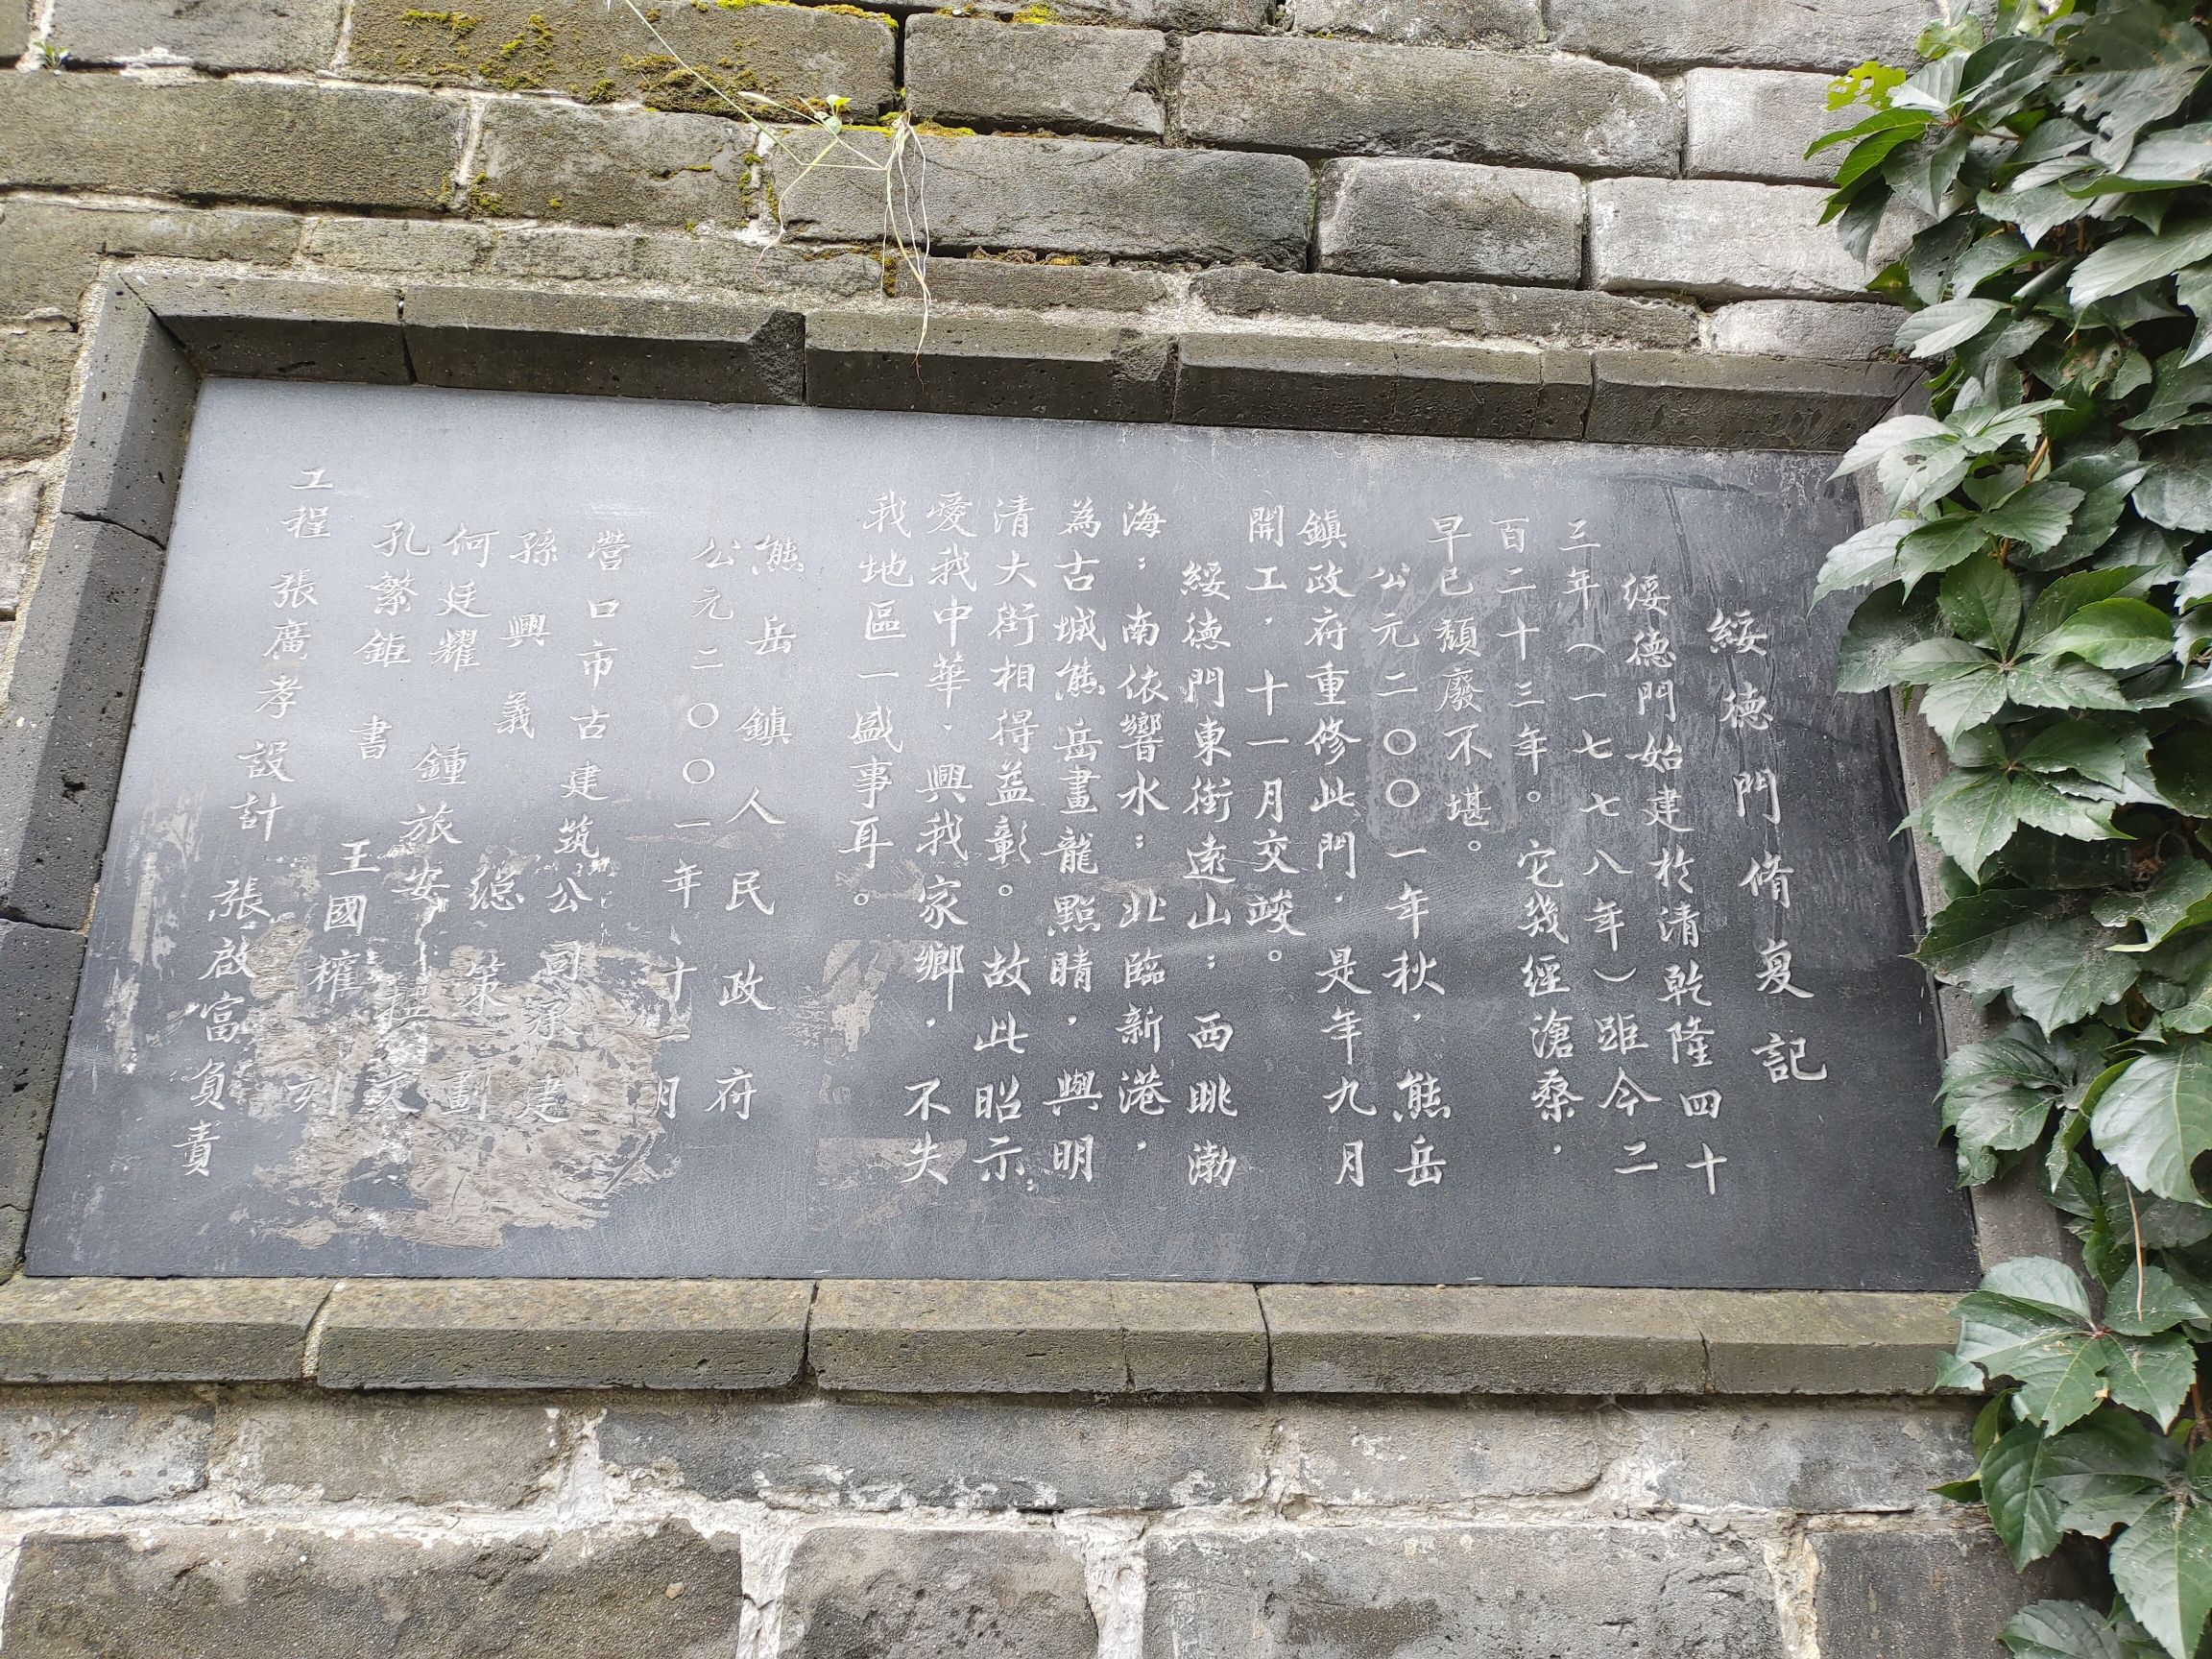 綏德門脩复記
綏德門始建於清乾隆四十
三年（一七七八年）距今二
百二十三年。它幾經滄桑，
早已頹廢不堪。
公元二〇〇一年秋，熊岳
鎮政府重修此門，是年九月
開工，十一月交竣。
綏德門東銜遠山；西眺渤
海；南依響水；北臨新港，
為古城熊岳畫龍點睛，與明
清大街相得益彰。故此昭示
愛我中華，興我家鄉，不失
我地區一盛事耳。
熊岳鎮人民政府
公元二〇〇一年十一月
營口市古建筑公司承建
孫興義 總策劃
何廷耀 鍾旅安 撰文
孔繁鉅書 王國權刻
工程 張廣孝設計 張啟富負責